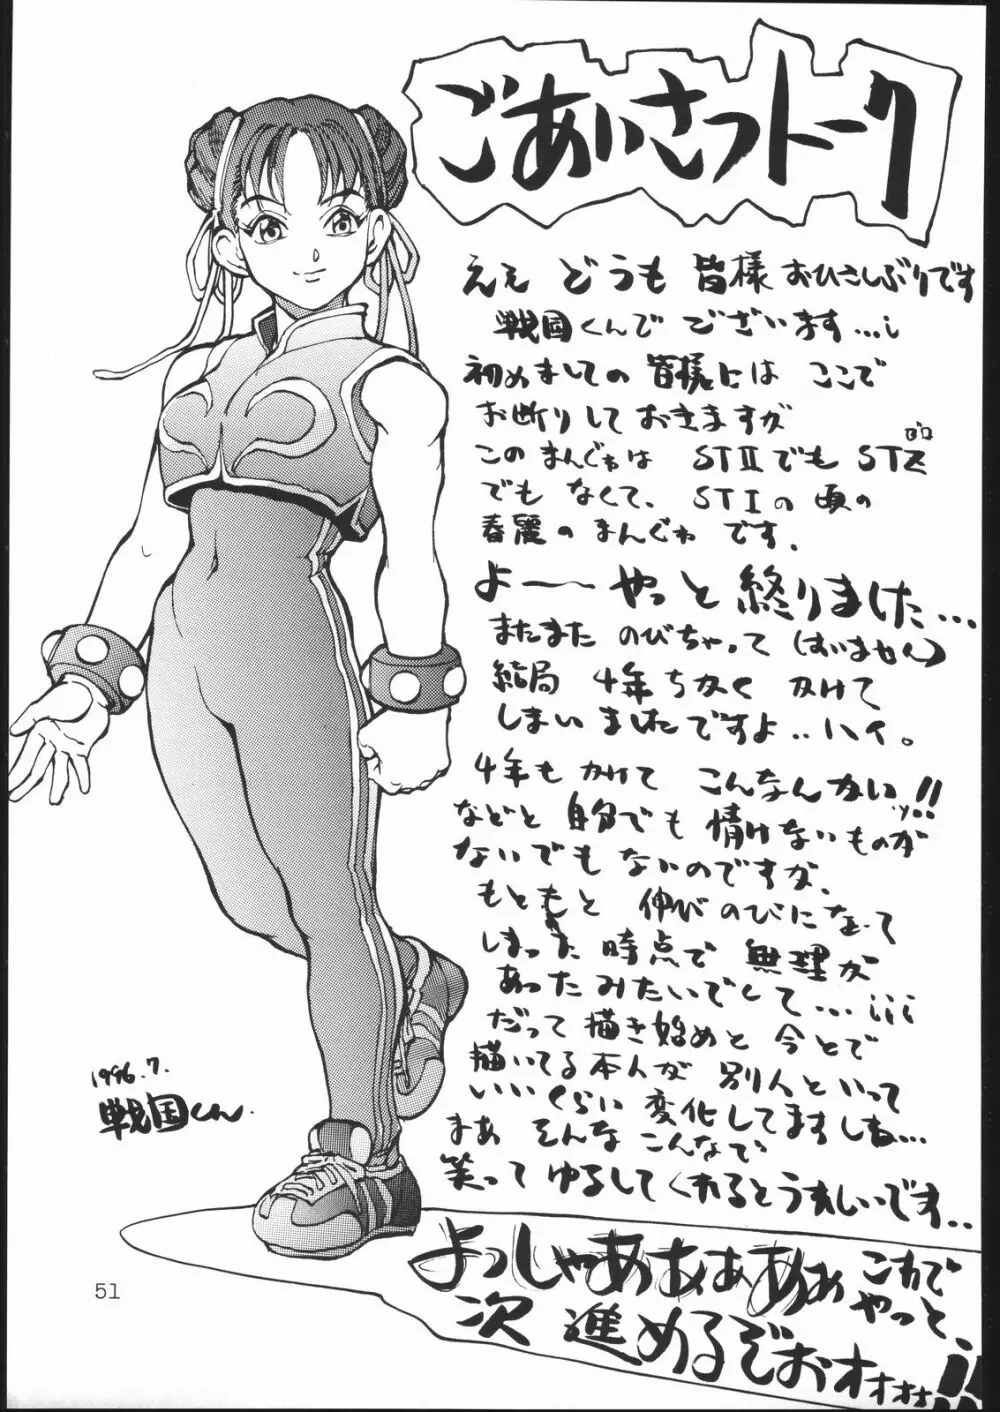 ごあいさつトーク
ええ どうも 皆様 おひさしぶりです
戦国くんで ございます…!
初めましての 皆様には ここで
お断りして おきますが
このまんがゎは STⅡでも STZ
ゼロ
でも なくて、 STⅠの 頃の
春麗の まんがゎ です.
よーーやっと 終りました…
またまた のびちゃって (すいません)
結局 4年ちかく かけて
しまい ましたですよ‥ハイ。
4年も かけて こんなんかいッ!!
などと 自分でも 情けないものが
ないでも ないのですが、
もともと 伸び のびになって
しまった 時点で 無理が
あったみたいでして…!!!
だって 描き始めと 今とで
描いてる 本人が 別人といって
いいくらい 変化してますしね…
まあ そんな こんなで
笑って ゆるして くれるとうれしいです‥
よっしゃあああああ これで
やっと、
次 進めるぞおオォォォ!!
1996.7.
戦国くん.
51